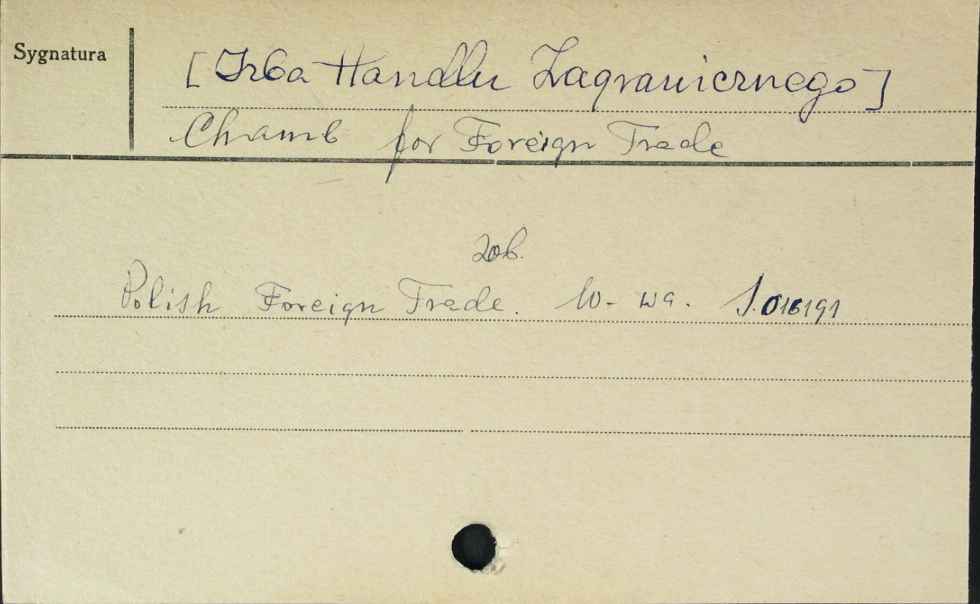 Sygnatura
[Izba Handlu Zagranicznego]
Chamb for Foreign Trade
zob.
Polish Foreign Trade. W-wa. J.016191